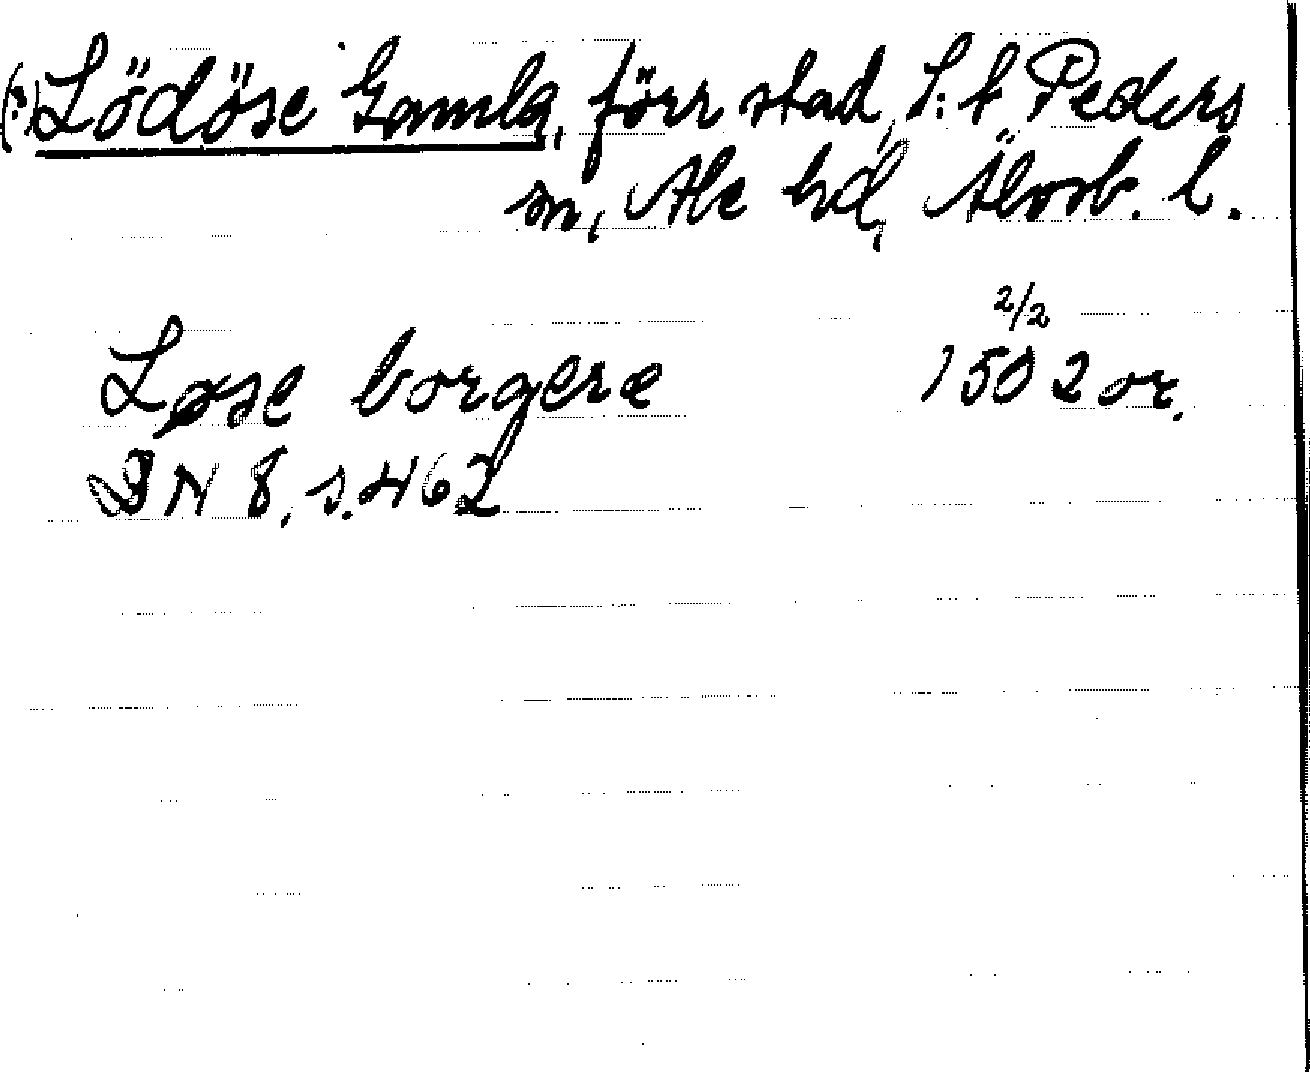 (?) Lödöse Gamla, förr stad, S:t Peders
sn, Ale hd, Älvsb. l.
Løse borgere 2/2 1502 or.
DN 8, s. 462